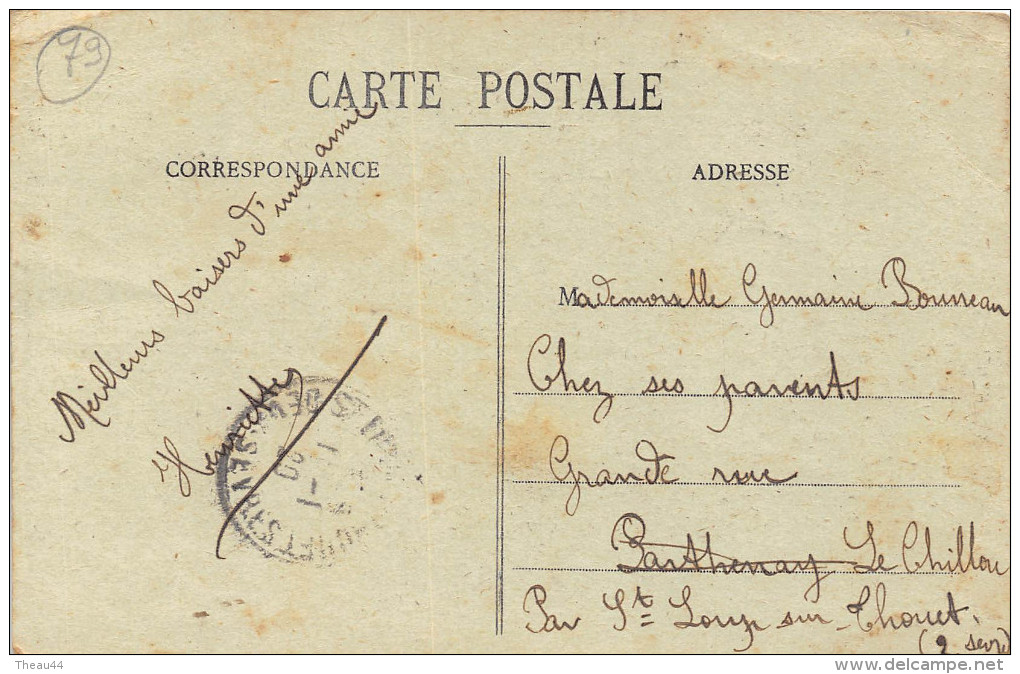 79
CARTE POSTALE
CORRESPONDANCE
ADRESSE
Meilleurs baisers d'une amie
Henriette
Mademoiselle Germaine Bousseau
Chez ses parents
Grande rue
Parthenay Le Chillou
Par St Loup sur Thouet.
(2 sevre
DEUX-SEVRES
Theau44
www.delcampe.net